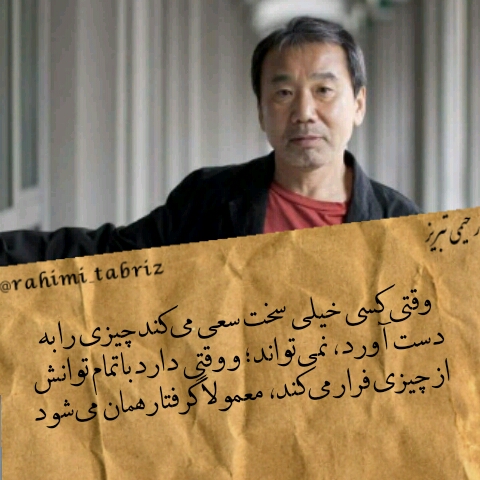 رحیمی تبریز
@rahimi_tabriz
وقتی کسی خیلی سخت سعی می‌کند چیزی را به
دست آورد، نمی‌تواند؛ و وقتی دارد با تمام توانش
از چیزی فرار می‌کند، معمولا گرفتار همان می‌شود